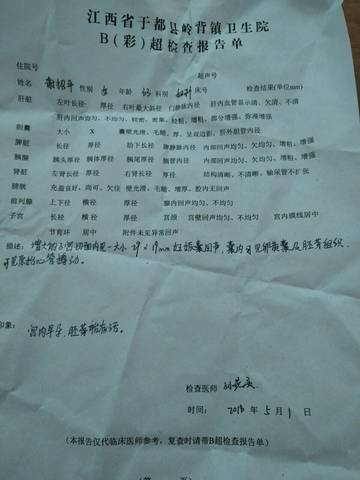 江西省于都县岭背镇卫生院
B（彩）超检查报告单
住院号 超声号
姓名 性别 女 年龄 科别 妇科 床号 检查结果(单位mm)
肝脏 左叶长径 厚径 右叶最大斜径 门静脉内径 肝内血管显示清、欠清、不清
肝内回声均匀、不均匀、较密、密集、粗糙、增粗、部分增强、弥漫增强
胆囊 大小 X 囊壁光滑、毛糙、厚、呈双边影、肝外胆管内径
脾脏 长径 厚径 肋下长径 脾静脉内径 内部回声均匀、欠均匀、增粗、增强
胰腺 胰头厚径 胰体厚径 胰尾厚径 胰管内径 内部回声均匀、欠均匀、增粗、增强
肾脏 左肾长径 厚径 右肾长径 厚径 结构清晰、不清晰、输尿管不扩张
膀胱 充盈良好、尚可、欠佳 壁光滑、毛糙、增厚、腔内无回声
前列腺 上下径 横径 厚径 腺内回声均匀、不均匀
子宫 长径 横径 厚径 宫颈 宫壁回声均匀、不均匀 宫内膜线居中
节育环 居中 附件未见异常回声
描述：增大的子宫切面内见一大小 29 x 19mm 妊娠囊回声，囊内可见卵黄囊及胚芽组织，
可见原始心管搏动。
印象：
宫内早孕，胚芽胎存活。
检查医师
时间： 2018 年 5 月 1 日
(本报告仅代临床医师参考，复查时请带B超检查报告单)